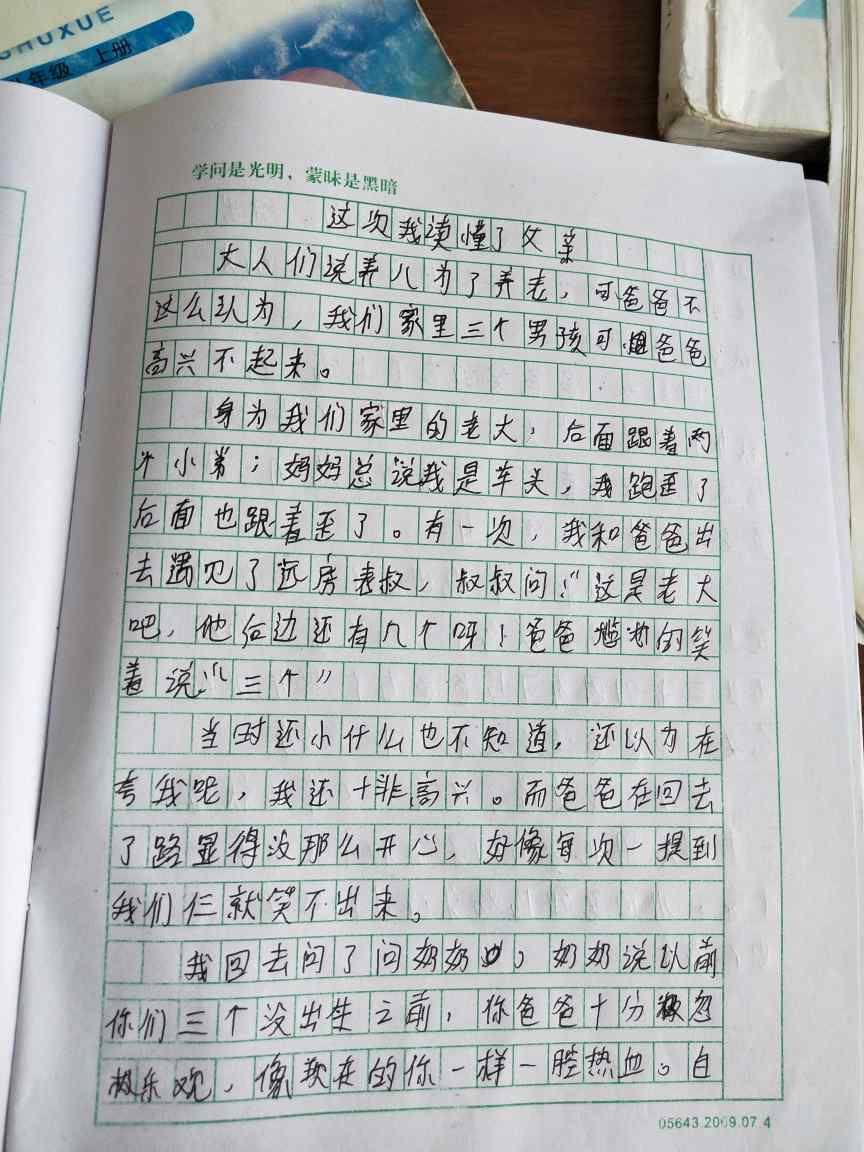 SHUXUE
年级 上册
学问是光明，蒙昧是黑暗
这次我读懂了父亲
大人们说养儿为了养老，可爸爸不
这么认为，我们家里三个男孩可爸爸
高兴不起来。
身为我们家里的老大，后面跟着两
个小弟；妈妈总说我是车头，我跑歪了
后面也跟着歪了。有一次，我和爸爸出
去遇见了远房表叔，叔叔问：“这是老大
吧，他后边还有几个呀！爸爸尴尬的笑
着说：“三个”
当时还小什么也不知道，还以为在
夸我呢，我还十非高兴。而爸爸在回去
了路显得没那么开心，好像每次一提到
我们仨就笑不出来。
我回去问了问奶奶，奶奶说以前
你们三个没出生之前，你爸爸十分忽
极乐观，像现在的你一样一腔热血。自
05643.2009.07 4